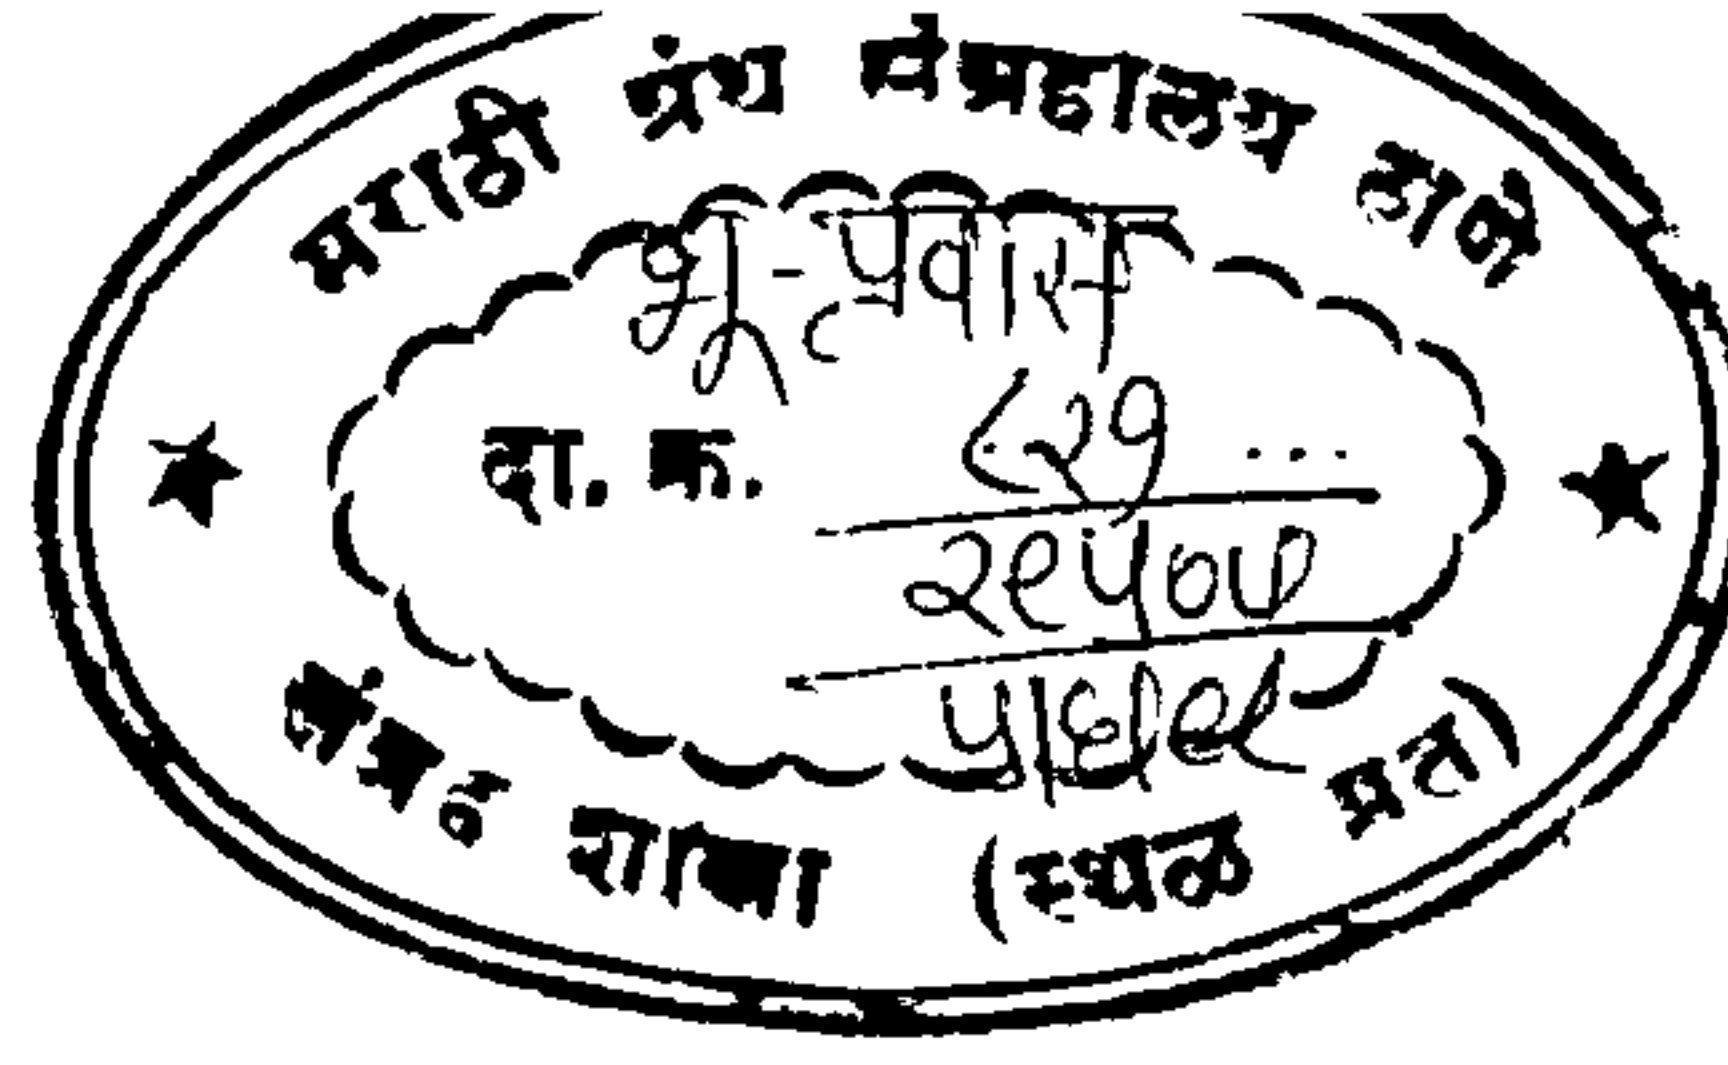 मराठी ग्रंथ संग्रहालय ठाणे
भू-प्रवास
दा. क्र. ८२१ ...
२९५०७
संग्रह शाखा (स्थळ प्रत)